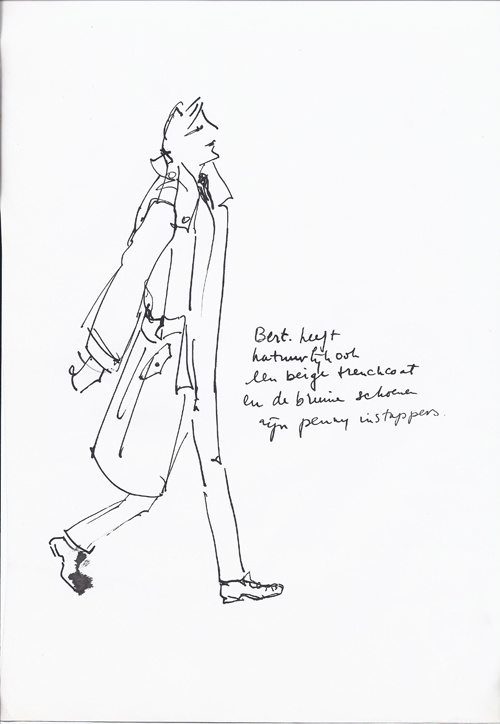 Bert. heeft
natuurlijk ook
een beige trenchcoat
en de bruine schoenen
zijn penny instappers.